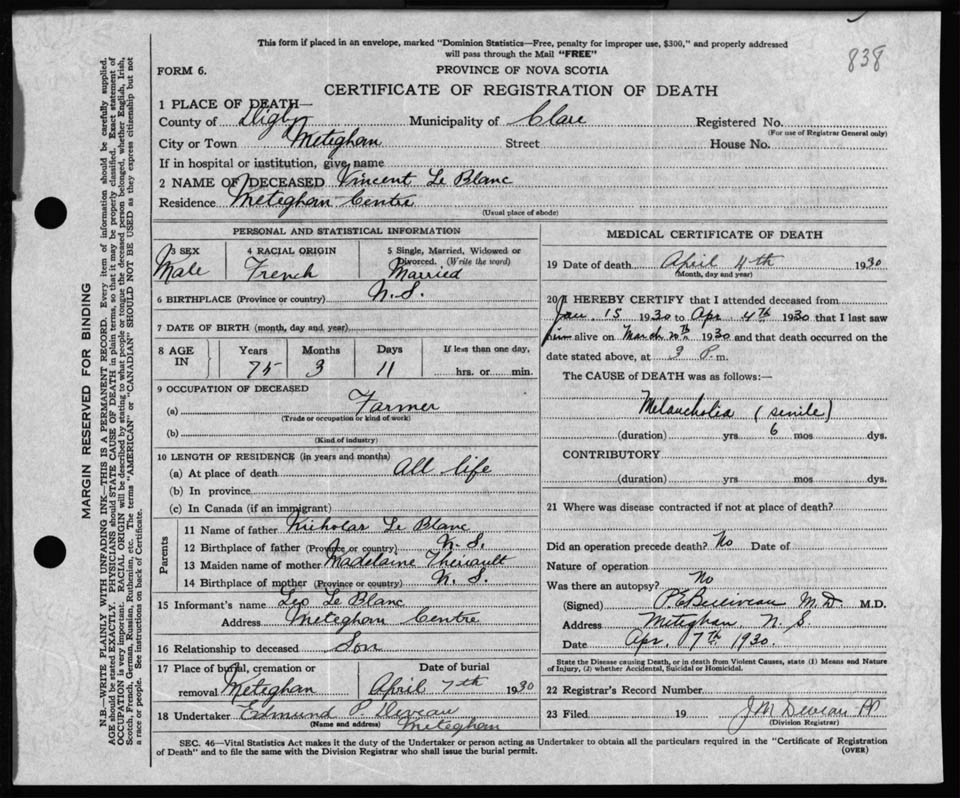 This form if placed in an envelope, marked "Dominion Statistics—Free, penalty for improper use, $300," and properly addressed
will pass through the Mail "FREE"
838
FORM 6. PROVINCE OF NOVA SCOTIA
CERTIFICATE OF REGISTRATION OF DEATH
1 PLACE OF DEATH—
County of Digby Municipality of Clare Registered No.
(For use of Registrar General only)
City or Town Meteghan Street House No.
If in hospital or institution, give name
2 NAME OF DECEASED Vincent Le Blanc
Residence Meteghan Centre
(Usual place of abode)
PERSONAL AND STATISTICAL INFORMATION
3 SEX Male
4 RACIAL ORIGIN French
5 Single, Married, Widowed or
Divorced. (Write the word)
Married
6 BIRTHPLACE (Province or country) N.S.
7 DATE OF BIRTH (month, day and year)
8 AGE IN Years Months Days If less than one day,
75 3 11 hrs. or min.
9 OCCUPATION OF DECEASED
(a) Farmer
(Trade or occupation or kind of work)
(b)
(Kind of industry)
10 LENGTH OF RESIDENCE (in years and months)
(a) At place of death All life
(b) In province
(c) In Canada (if an immigrant)
Parents
11 Name of father Nicholas Le Blanc
12 Birthplace of father (Province or country) N.S.
13 Maiden name of mother Madelaine Theriault
14 Birthplace of mother (Province or country) N.S.
15 Informant's name Leo Le Blanc
Address Meteghan Centre
16 Relationship to deceased Son
17 Place of burial, cremation or Date of burial
removal Meteghan April 7th 1930
18 Undertaker Edmund P. Deveau
(Name and address) Meteghan
MEDICAL CERTIFICATE OF DEATH
19 Date of death April 4th 1930
(Month, day and year)
20 I HEREBY CERTIFY that I attended deceased from
Jan. 15 1930 to Apr 4th 1930 that I last saw
him alive on March 20th 1930 and that death occurred on the
date stated above, at 3 P. m.
The CAUSE of DEATH was as follows:—
Melancholia (senile)
(duration) yrs 6 mos dys.
CONTRIBUTORY
(duration) yrs. mos dys.
21 Where was disease contracted if not at place of death?
Did an operation precede death? No Date of
Nature of operation
Was there an autopsy? No
(Signed) M.D. M.D.
Address Meteghan, N.S.
Date Apr. 7th 1930.
State the Disease causing Death, or in death from Violent Causes, state (1) Means and Nature
of Injury, (2) whether Accidental, Suicidal or Homicidal.
22 Registrar's Record Number
23 Filed 19 J M Deveau
(Division Registrar)
SEC. 46—Vital Statistics Act makes it the duty of the Undertaker or person acting as Undertaker to obtain all the particulars required in the "Certificate of Registration
of Death" and to file the same with the Division Registrar who shall issue the burial permit. (OVER)
MARGIN RESERVED FOR BINDING
N.B.—WRITE PLAINLY WITH UNFADING INK—THIS IS A PERMANENT RECORD. Every item of information should be carefully supplied.
AGE should be stated EXACTLY. PHYSICIANS should STATE CAUSE OF DEATH in plain terms, so that it may be properly classified. Exact statement of
OCCUPATION is very important. RACIAL ORIGIN will be described by stating to what people or tongue the deceased person belonged, whether English, Irish,
Scotch, French, German, Russian, Ruthenian, etc. The terms "AMERICAN" or "CANADIAN" SHOULD NOT BE USED as they express citizenship but not
a race or people. See instructions on back of Certificate.